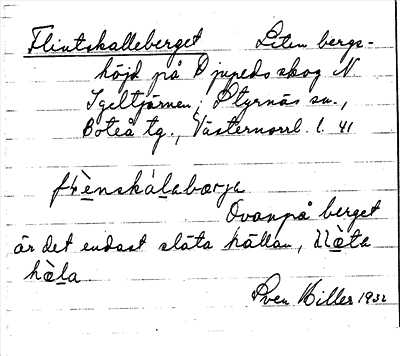 Flintskalleberget Liten bergs-
höjd på Djupedsskog N.
Igeltjärnen; Styrnäs sn.,
Boteå tg., Västernorrl. l. 41
Ovanpå berget
är det endast släta hällan,
hὲla.
Sven Hiller 1932